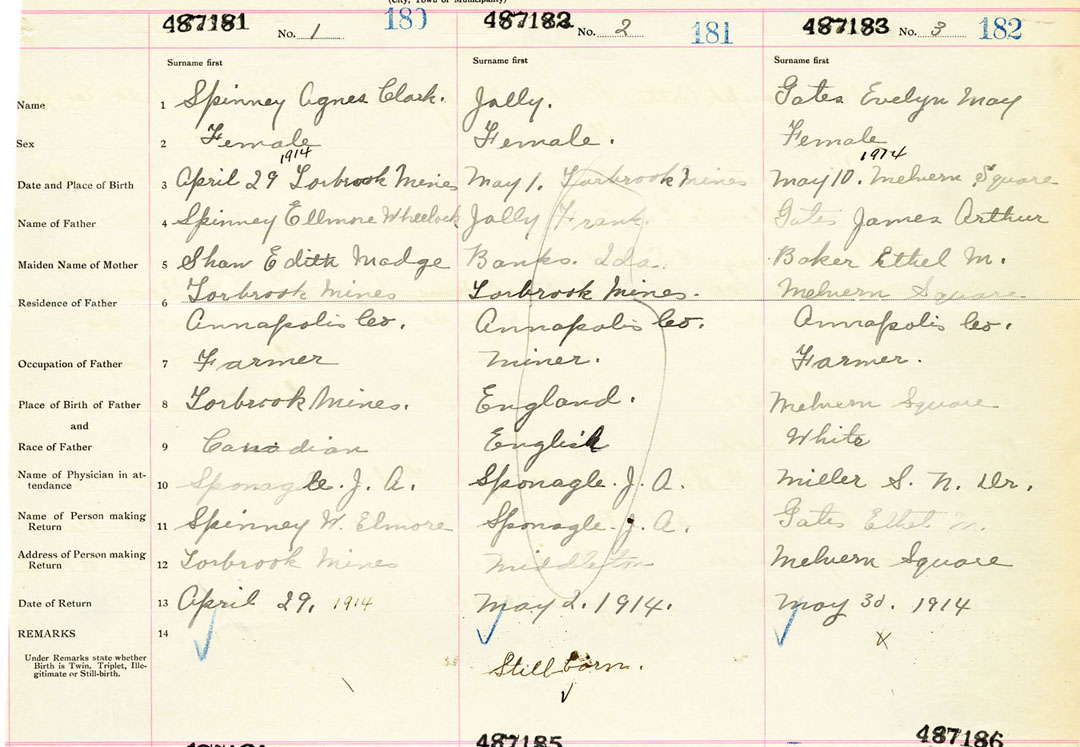 (City, Town or Municipality)
487181 No. 1 180 487182 No. 2 181 487183 No. 3 182
Surname first Surname first Surname first
Name 1 Spinney Agnes Clark. Jolly. Gates Evelyn May
Sex 2 Female Female. Female
1914 1914
Date and Place of Birth 3 April 29 Torbrook Mines May 1. Torbrook Mines May 10. Melvern Square
Name of Father 4 Spinney Ellmore Wheelock Jolly Frank. Gates James Arthur
Maiden Name of Mother 5 Shaw Edith Madge Banks. Ida. Baker Ethel M.
Residence of Father 6 Torbrook Mines Torbrook Mines. Melvern Square
Annapolis Co. Annapolis Co. Annapolis Co.
Occupation of Father 7 Farmer Miner. Farmer.
Place of Birth of Father 8 Torbrook Mines. England. Melvern Square
and
Race of Father 9 Canadian English White
Name of Physician in at-
tendance 10 Sponagle. J. A. Sponagle. J. A. Miller S. N. Dr.
Name of Person making
Return 11 Spinney W. Elmore Sponagle. J. A. Gates Ethel M.
Address of Person making
Return 12 Torbrook Mines Middleton Melvern Square
Date of Return 13 April 29, 1914 May 2. 1914. May 30. 1914
REMARKS 14
Under Remarks state whether
Birth is Twin, Triplet, Ille-
gitimate or Still-birth.
Stillborn.
487185 487186